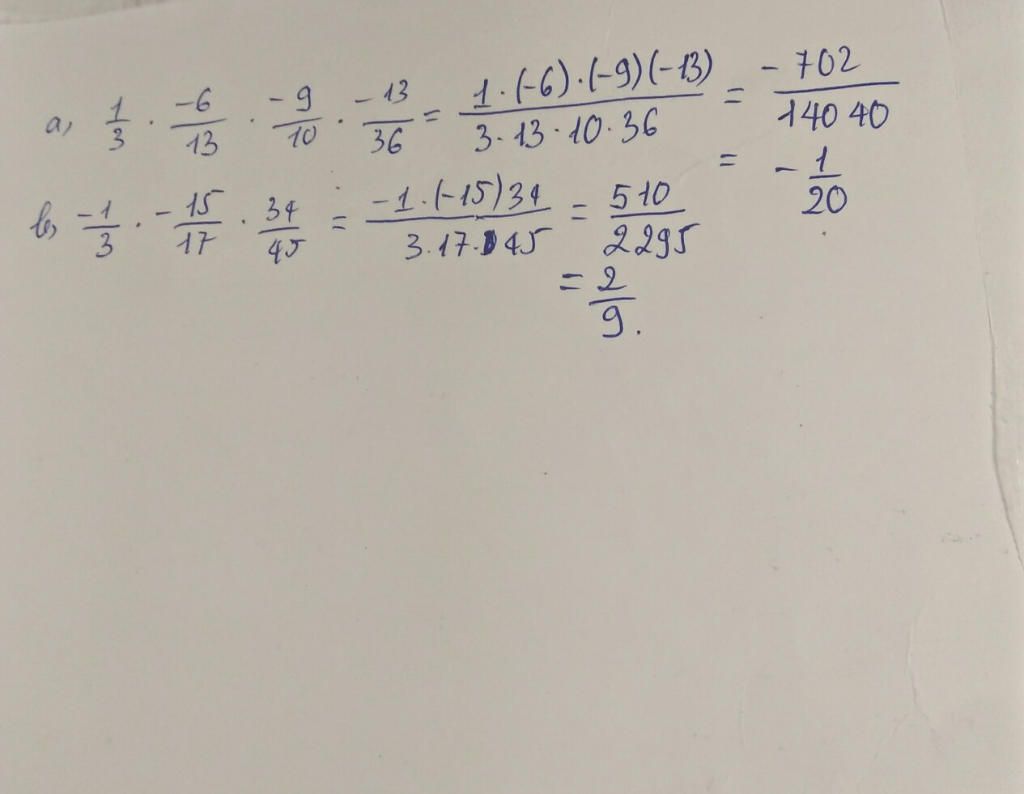 a, 1/3 · -6/13 · -9/10 · -13/36 = 1·(-6)·(-9)(-13)/3·13·10·36 = -702/14040
= -1/20
b, -1/3 · -15/17 · 34/45 = -1·(-15)34/3.17.45 = 510/2295
= 2/9.